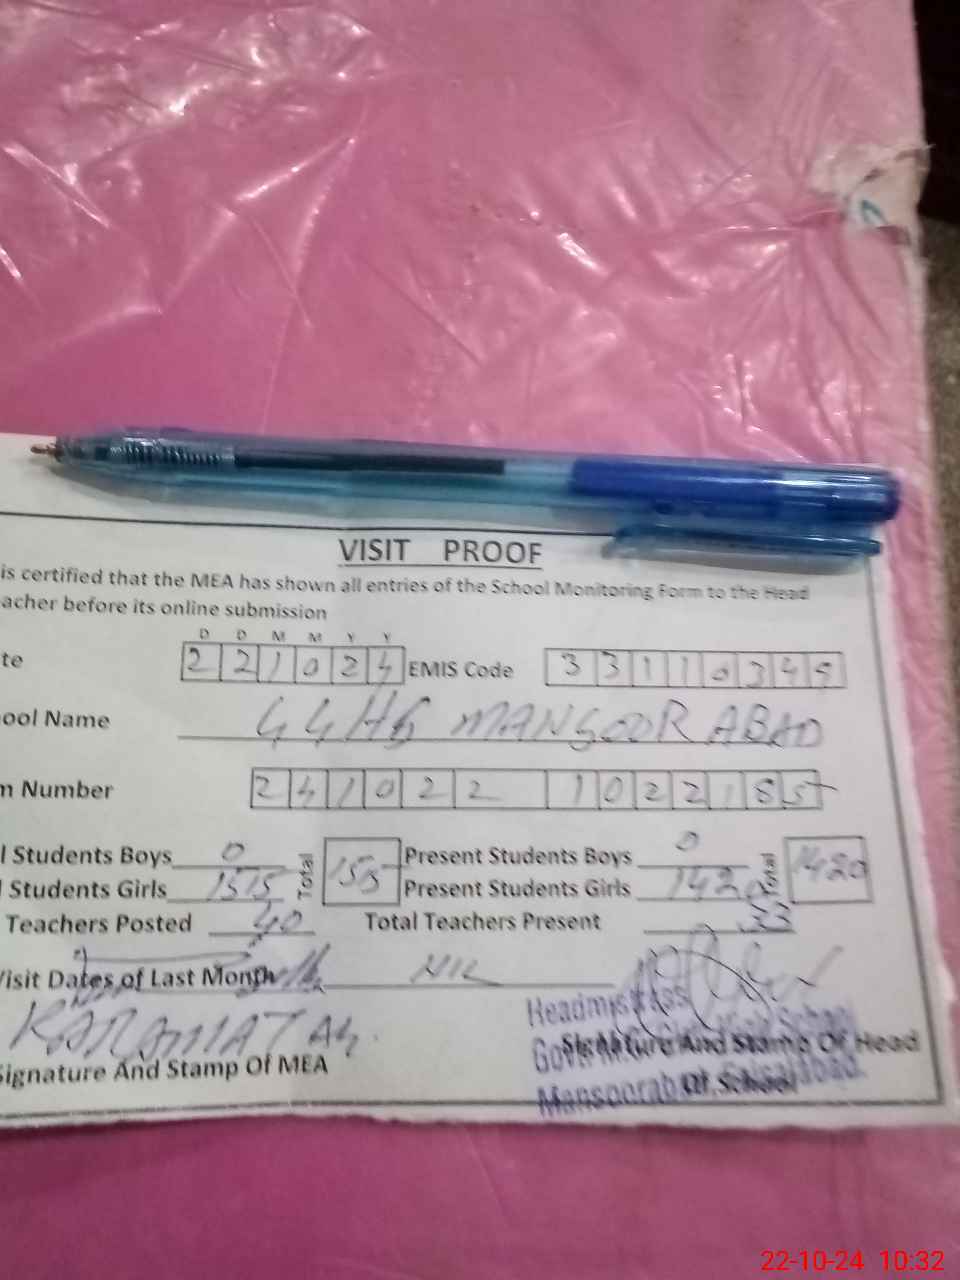 VISIT PROOF
is certified that the MEA has shown all entries of the School Monitoring Form to the Head
acher before its online submission
D D M M Y Y
te 2 2 1 0 2 4 EMIS Code 3 3 1 1 0 3 4 9
ool Name GGHS MANSOOR ABAD
m Number 2 4 1 0 2 2 1 0 2 2 1 8
l Students Boys 0 Total Present Students Boys 0 Total 1420
Students Girls 1515 Present Students Girls 1420
Teachers Posted 40 Total Teachers Present 33
Visit Dates of Last Month NIL
KARAMAT Ali
Headmistress
Signature And Stamp Of Head
Govt. Girls High School
Signature And Stamp Of MEA
Of School
Mansoorabad, Faisalabad.
22-10-24 10:32